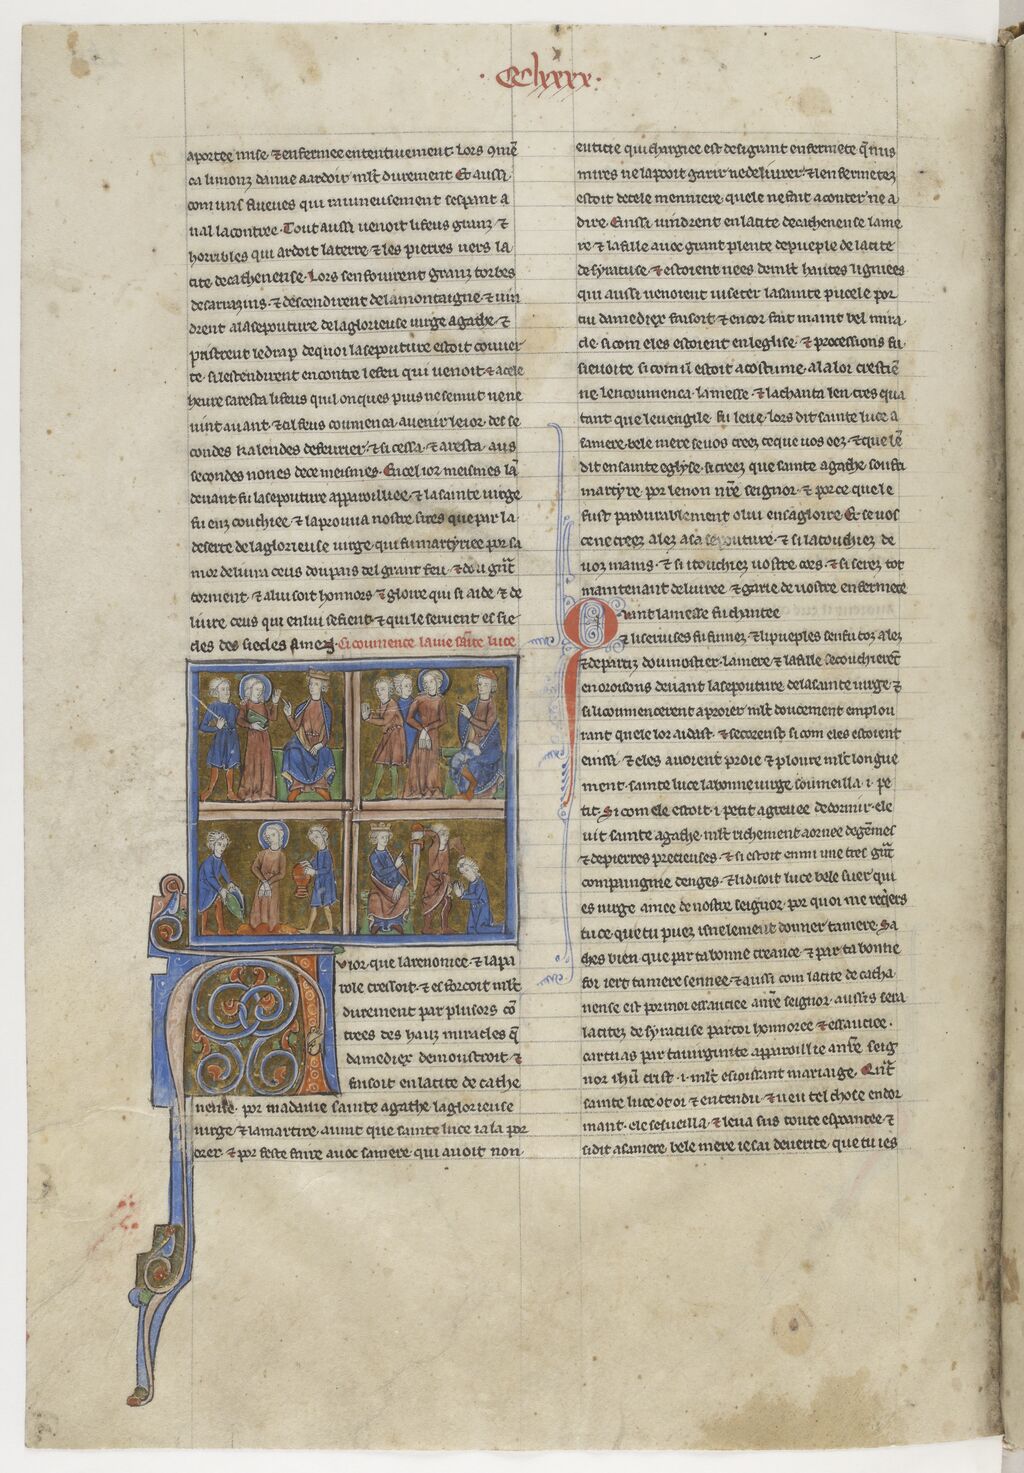 ·CClxxx·
aportee mise ⁊ enfermee ententiuement. Lors 9me
ca li monz danne a ardoir mlt durement Et aussi
com uns flueues qui rauineusement sespant a
ual la contree. Tout aussi uenoit li feus granz ⁊
horribles qui ardoit la terre ⁊ les pierres uers la
cite de cathenense. Lors senfouirent granz torbes
de sarrazins. ⁊ descendirent de la montaigne ⁊ uin
drent a la sepouture de la glorieuse uirge agathe. ⁊
pristrent le drap de quoi la sepouture estoit couuer
te. si lestendirent encontre le feu qui uenoit ⁊ a cele
heure saresta li feus quil onques puis ne se mut ne ne
uint auant ⁊ cil feus coumenca auenir le ior des se
condes kalendes de feurier. ⁊ si cessa ⁊ aresta aus
secondes nones de ce meismes. En cel ior meismes la
deuant fu la sepouture apparoilliee ⁊ la sainte uirge
fu enz couchiee. ⁊ la prouua nostre sires que par la
deserte de la glorieuse uirge qui fu martyriee por sa
mor deliura ceus dou pais del grant feu ⁊ dou gñt
torment. ⁊ a lui soit honnors ⁊ gloire qui si aide ⁊ de
liure ceus qui en lui se fient ⁊ qui le seruent es sie
cles des siecles amen. Si coumence la uie sainte luce
Vior que la renomee ⁊ la pa
role cressoit ⁊ esforcoit mlt
durement par plusors co
trees des hauz miracles q
damediex demoustroit ⁊
faisoit en la cite de cathe
nense. por madame sainte agathe la glorieuse
uirge ⁊ la martire. auint que sainte luce i ala por
orer. ⁊ por feste faire auoc sa mere qui auoit non
euticie qui chargiee est de si grant enfermete q nus
mires ne la pooit garir ne deliurer ⁊ lenfermetez
estoit de cele menniere quele ne fait a conter ne a
dire. Einssi uindrent en la cite de cathenense la me
re ⁊ la fille auoc grant plente de pueple de la cite
de syracuse. ⁊ estoient nees de mlt hautes ligniees
qui aussi uenoient uiseter la sainte pucele por
cui damediex faisoit ⁊ encor fait maint bel mira
cle. si com eles estoient en leglise ⁊ processions fu
si euoite si com il estoit a costume. a la lor crestie
ne len coumenca la messe. ⁊ la chanta len tres qua
tant que leuengile fu leue. lors dit sainte luce a
sa mere. bele mere se uos creez ce que uos oez ⁊ que le
dit en sainte eglyse. si creez que sainte agathe soufri
martyre por le non nre seignor ⁊ por ce quele
fust pardurablement o lui en sa gloire. Et se uos
ce ne creez alez a sa sepouture. ⁊ si la touchiez de
uoz mains. ⁊ si i touchiez uostre cors. ⁊ si serez tot
maintenant deliuree ⁊ garie de uostre enfermete
Quant la messe fu chantee
⁊ li seruises fu finnez ⁊ li pueples sen fu toz alez
⁊ departiz dou mostier. la mere ⁊ la fille se couchierent
en oroisons deuant la sepouture de la sainte uirge ⁊
si li coumencerent a proier mlt doucement em plou
rant quele lor aidast ⁊ secoreust si com eles estoient
einssi ⁊ eles auoient proie ⁊ ploure mlt longue
ment. sainte luce la bonne uirge someilla .i. pe
tit. Si com ele estoit .i. petit agreuee de dormir. ele
uit sainte agathe mlt richement aornee de gemes
⁊ de pierres precieuses. ⁊ si estoit enmi une tres gñt
compaingnie denges. ⁊ li disoit luce bele suer qui
es uirge amee de nostre seignor. por quoi me reqiers
tu ce que tu puez isnelement donner ta mere. Sa
ches bien que par ta bonne creance ⁊ par ta bonne
foi iert ta mere sennee. ⁊ aussi com la cite de catha
nense est por moi essauciee a nre seignor. aussis sera
la citez de syracuse par toi honnoree ⁊ essauciee.
car tu as par ta uirginite apparoillie a nre seig
nor ihu crist .i. mlt esioissant mariaige. Qnt
sainte luce ot oi ⁊ entendu ⁊ ueu tel chose en dor
mant. ele sesueilla. ⁊ leua sus toute espoantee ⁊
si dit a sa mere. bele mere ie sai de uerite que tu ies